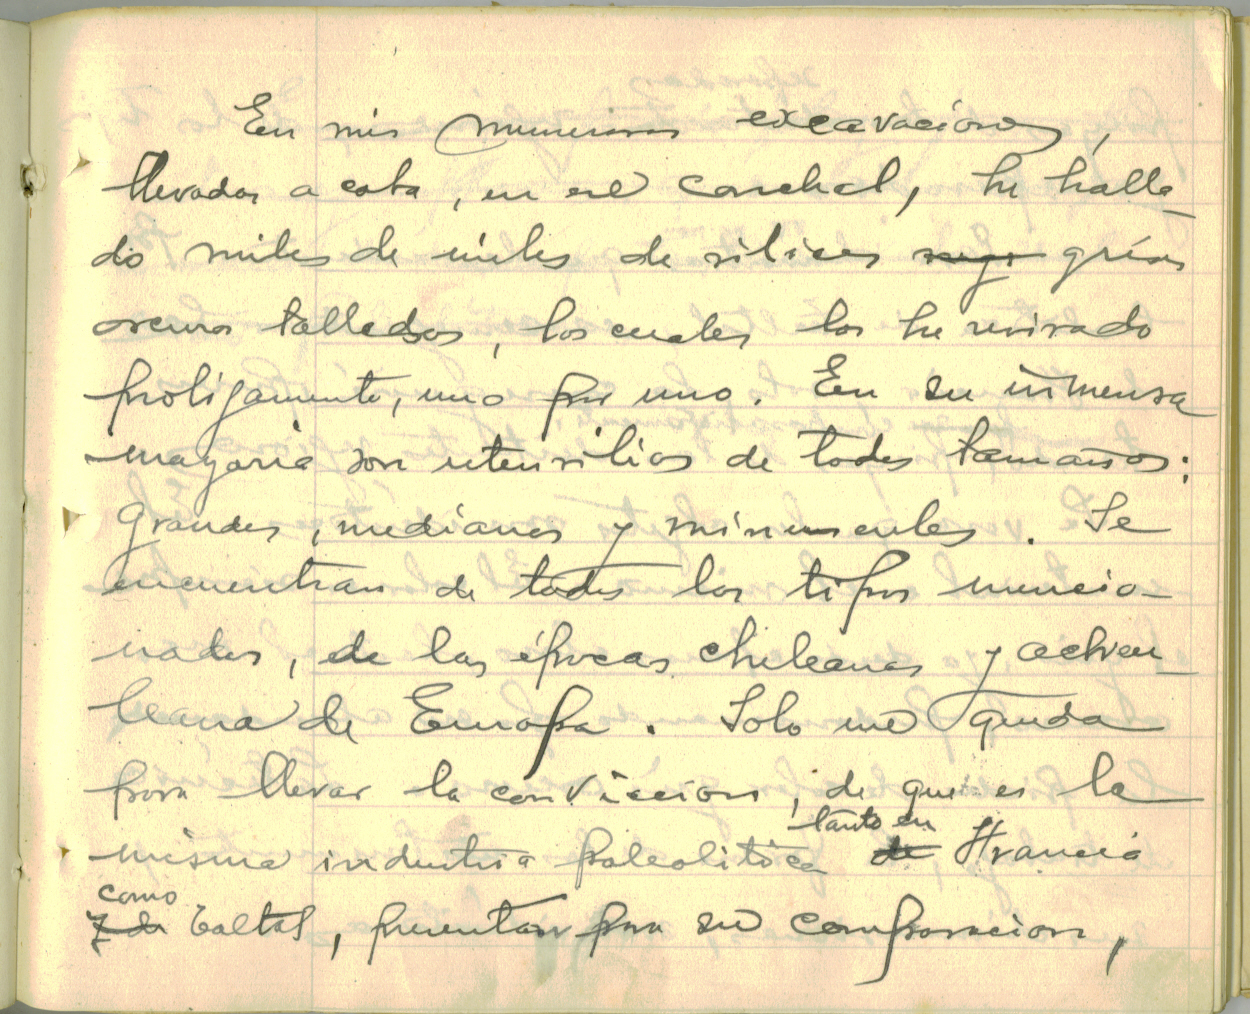 En mis numerosas excavaciones,
llevadas a cabo, en ese conchal, he halla-
do miles de miles de silices negr grises
oscuros tallados, los cuales los he revisado
prolijamente, uno por uno. En su inmensa
mayoria son utensilios de todos tamaños:
Grandes, medianos y minusculos. Se
encuentran de todos los tipos mencio-
nados, de las épocas cheleanas y acheu-
leana de Europa. Solo me queda
para llevar la conviccion, de que es la
tanto en
misma industria paleolitica de Francia
como
y de Taltal, presentar para su comparacion,